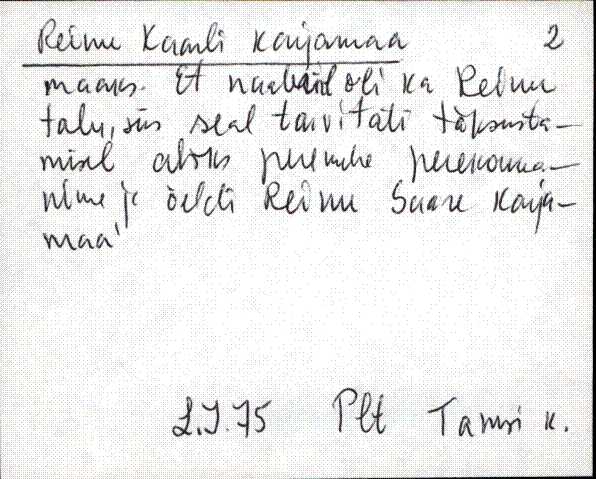 Reinu Kaarli karjamaa 2
maaks. Et naabrid oli ka Reinu
talu, siis seal tarvitati täpsusta-
misel abiks peremehe perekonna-
nime ja öeldi Reinu Saare karja-
maa'
L.J.75 Plt Tamsi k.